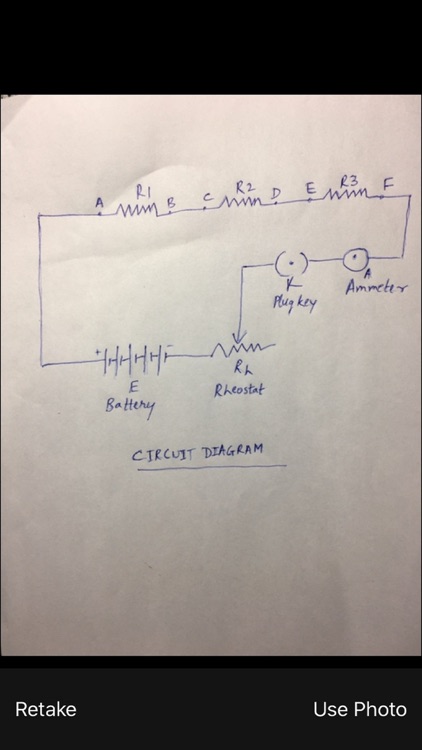 R1 R2 R3
A B C D E F
K A
Plug key Ammeter
+ -
E Rh
Battery Rheostat
CIRCUIT DIAGRAM
Retake Use Photo